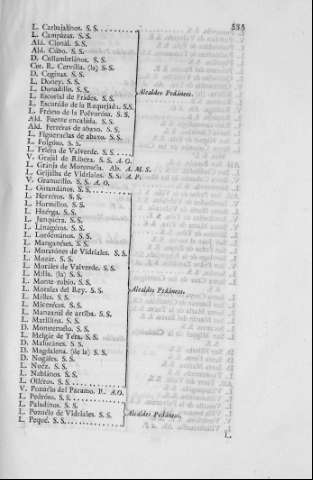 535
L. Carbajalinos. S. S.
L. Campázas. S. S.
Ald. Cional. S. S.
Ald. Cubo. S. S.
D. Collambriános. S. S.
Cot. R. Cervilla. (la) S. S.
D. Ceginas. S. S.
L. Doney. S. S.
L. Donadillo. S. S.
L. Escorial de Frades. S. S.
L. Escuredo de la Requejada. S. S.
L. Fresno de la Polvorosa. S. S.
Ald. Fuente encalada. S. S.
Ald. Ferreras de abaxo. S. S.
L. Figueruelas de abaxo. S. S.
L. Folgoso. S. S.
L. Friera de Valverde. S. S.
Alcaldes Pedáneos.
V. Grajal de Ribera. S. S. A. O.
L. Granja de Moreruela. Ab. A. M. S.
L. Grijalba de Vidriales. S. S. A. P.
V. Gramedillo. S. S. A. O.
L. Gusandános. S. S.
L. Herreros. S. S.
L. Hornillos. S. S.
L. Huerga. S. S.
L. Junquera. S. S.
L. Linagéros. S. S.
L. Lordemános. S. S.
L. Manganéses. S. S.
L. Moratónes de Vidriales. S. S.
L. Mozar. S. S.
L. Moráles de Valverde. S. S.
L. Milla. (la) S. S.
L. Monte rubio. S. S.
L. Morales del Rey. S. S.
L. Milles. S. S.
L. Micereces. S. S.
L. Manzanál de arriba. S. S.
L. Matilla. S. S.
D. Monteruelo. S. S.
L. Melgar de Tera. S. S.
D. Malucánes. S. S.
D. Magdalena. (de la) S. S.
D. Nogáles. S. S.
L. Nuéz. S. S.
L. Nabiános. S. S.
L. Olléros. S. S.
Alcaldes Pedáneos.
V. Pozuelo del Páramo. R. S.O.
L. Pedróso. S. S.
L. Paladinos. S. S.
L. Pozuélo de Vidriales. S. S.
L. Peque. S. S.
Alcaldes Pedáneos.
L.